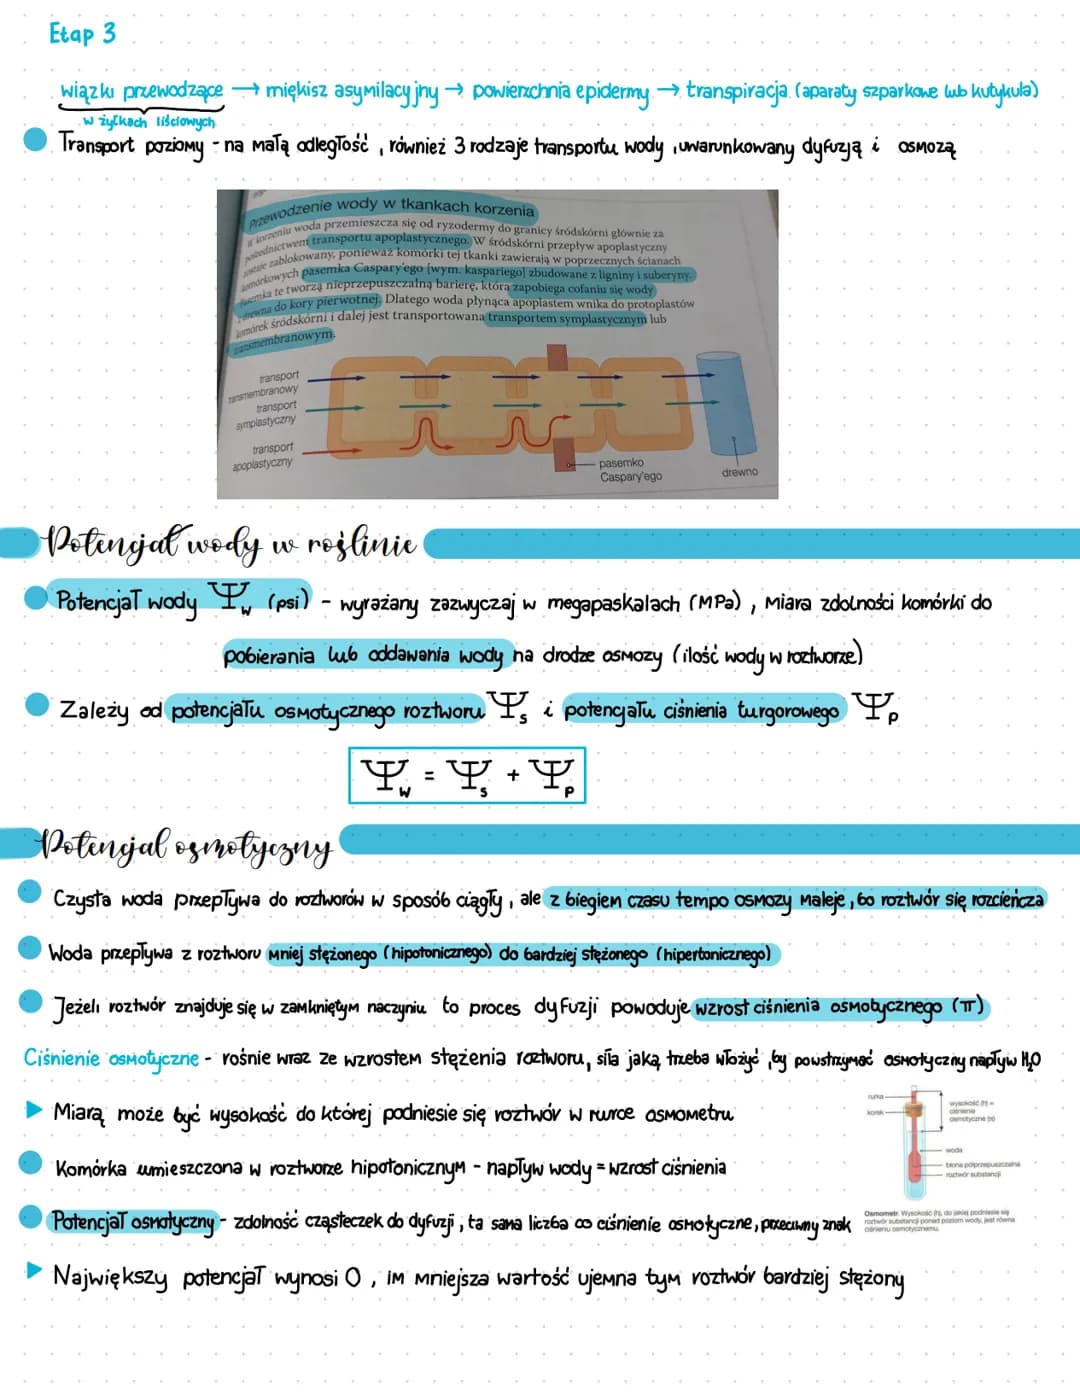 Etap 3
wiązki przewodzące → miękisz asymilacyjny → powierzchnia epidermy → transpiracja (aparaty szparkowe lub kutykula)
w żyłkach liściowych
Transport poziomy - na małą odległość, również 3 rodzaje transportu wody, uwarunkowany dyfuzją i osmozą
Przewodzenie wody w tkankach korzenia
W korzeniu woda przemieszcza się od ryzodermy do granicy śródskórni głównie za
pośrednictwem transportu apoplastycznego. W śródskórni przepływ apoplastyczny
zostaje zablokowany, ponieważ komórki tej tkanki zawierają w poprzecznych ścianach
komórkowych pasemka Caspary'ego [wym. kaspariego] zbudowane z ligniny i suberyny.
Pasemka te tworzą nieprzepuszczalną barierę, która zapobiega cofaniu się wody
z drewna do kory pierwotnej. Dlatego woda płynąca apoplastem wnika do protoplastów
komórek śródskórni i dalej jest transportowana transportem symplastycznym lub
transmembranowym.
transport
transmembranowy
transport
symplastyczny
transport
apoplastyczny
pasemko
Caspary'ego
drewno
Potencjał wody w roślinie
Potencjał wody Ψw (psi) - wyrażany zazwyczaj w megapaskalach (MPa), Miara zdolności komórki do
pobierania lub oddawania wody na drodze osmozy (ilość wody w roztworze)
Zależy od potencjału osmotycznego roztworu Ψs i potencjału ciśnienia turgorowego Ψp
Ψw = Ψs + Ψp
Potencjał osmotyczny
Czysta woda przepływa do roztworów w sposób ciągły, ale z biegiem czasu tempo osmozy maleje, bo roztwór się rozcieńcza
Woda przepływa z roztworu mniej stężonego (hipotonicznego) do bardziej stężonego (hipertonicznego)
Jeżeli roztwór znajduje się w zamkniętym naczyniu to proces dyfuzji powoduje wzrost ciśnienia osmotycznego (π)
Ciśnienie osmotyczne - rośnie wraz ze wzrostem stężenia roztworu, siła jaką trzeba włożyć, by powstrzymać osmotyczny napływ H₂O
Miarą może być wysokość do której podniesie się roztwór w rurce osmometru
rurka
korek
wysokość (h) =
ciśnienie
osmotyczne (π)
woda
błona półprzepuszczalna
roztwór substancji
Komórka umieszczona w roztworze hipotonicznym - napływ wody = wzrost ciśnienia
Potencjał osmotyczny - zdolność cząsteczek do dyfuzji, ta sama liczba co ciśnienie osmotyczne, przeciwny znak
Osmometr. Wysokość (h), do jakiej podniesie się
roztwór substancji ponad poziom wody, jest równa
ciśnieniu osmotycznemu.
Największy potencjał wynosi 0, im mniejsza wartość ujemna tym roztwór bardziej stężony